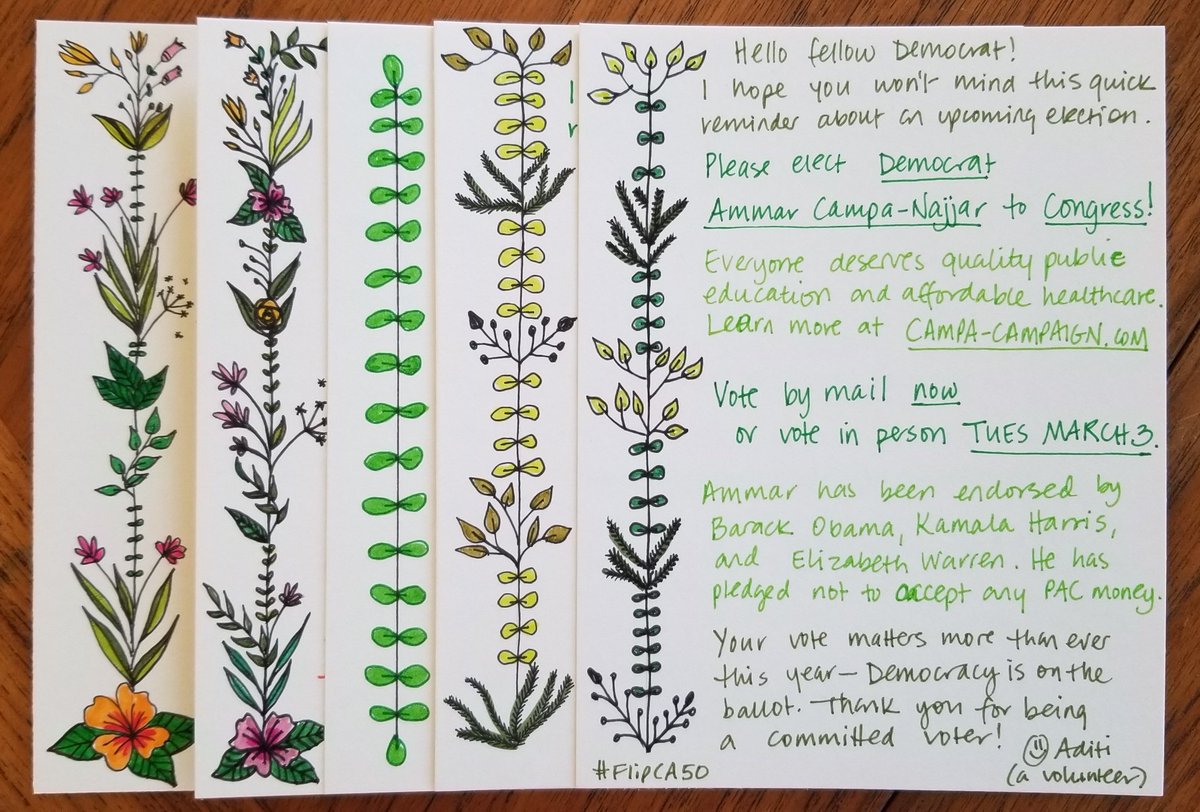 Hello fellow Democrat!
I hope you won't mind this quick
reminder about an upcoming election.
Please elect Democrat
Ammar Campa-Najjar to Congress!
Everyone deserves quality public
education and affordable healthcare.
Learn more at CAMPA-CAMPAIGN.COM
Vote by mail now
or vote in person TUES MARCH 3.
Ammar has been endorsed by
Barack Obama, Kamala Harris,
and Elizabeth Warren. He has
pledged not to accept any PAC money.
Your vote matters more than ever
this year—Democracy is on the
ballot. Thank you for being
a committed voter!
☺ Aditi
(a volunteer)
#FlipCA50